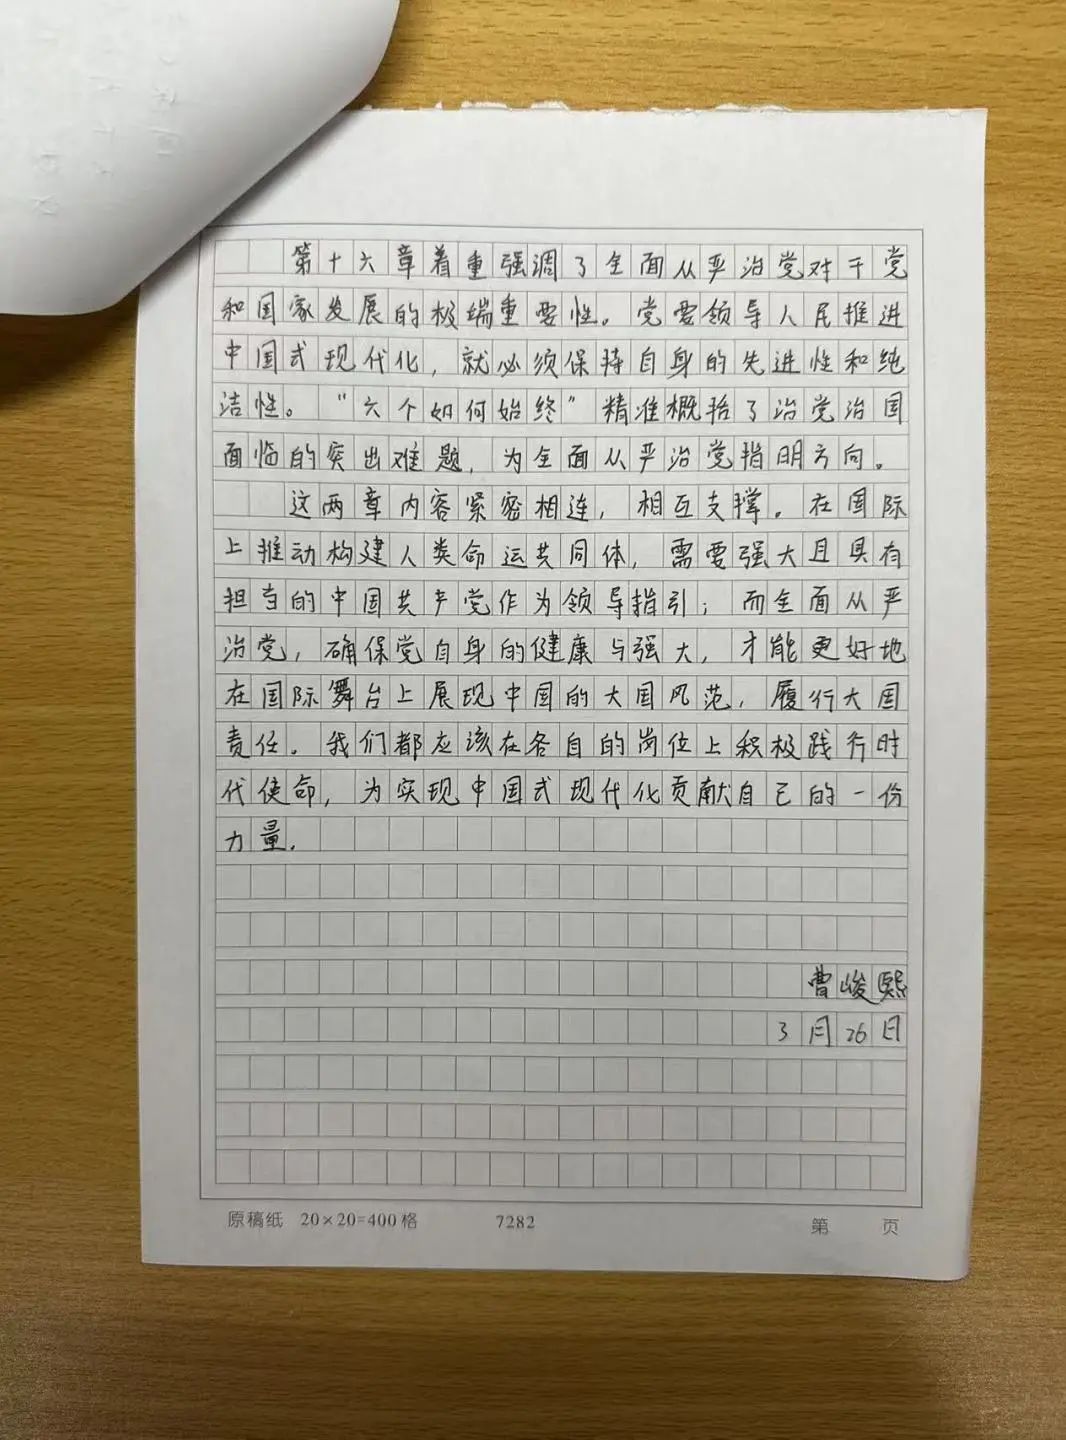 第十六章着重强调了全面从严治党对于党
和国家发展的极端重要性。党要领导人民推进
中国式现代化，就必须保持自身的先进性和纯
洁性。“六个如何始终”精准概括了治党治国
面临的突出难题，为全面从严治党指明方向。
这两章内容紧密相连，相互支撑。在国际
上推动构建人类命运共同体，需要强大且具有
担当的中国共产党作为领导指引；而全面从严
治党，确保党自身的健康与强大，才能更好地
在国际舞台上展现中国的大国风范，履行大国
责任。我们都应该在各自的岗位上积极践行时
代使命，为实现中国式现代化贡献自己的一份
力量。
曹峻熙
3月26日
原稿纸 20×20=400格 7282 第 页